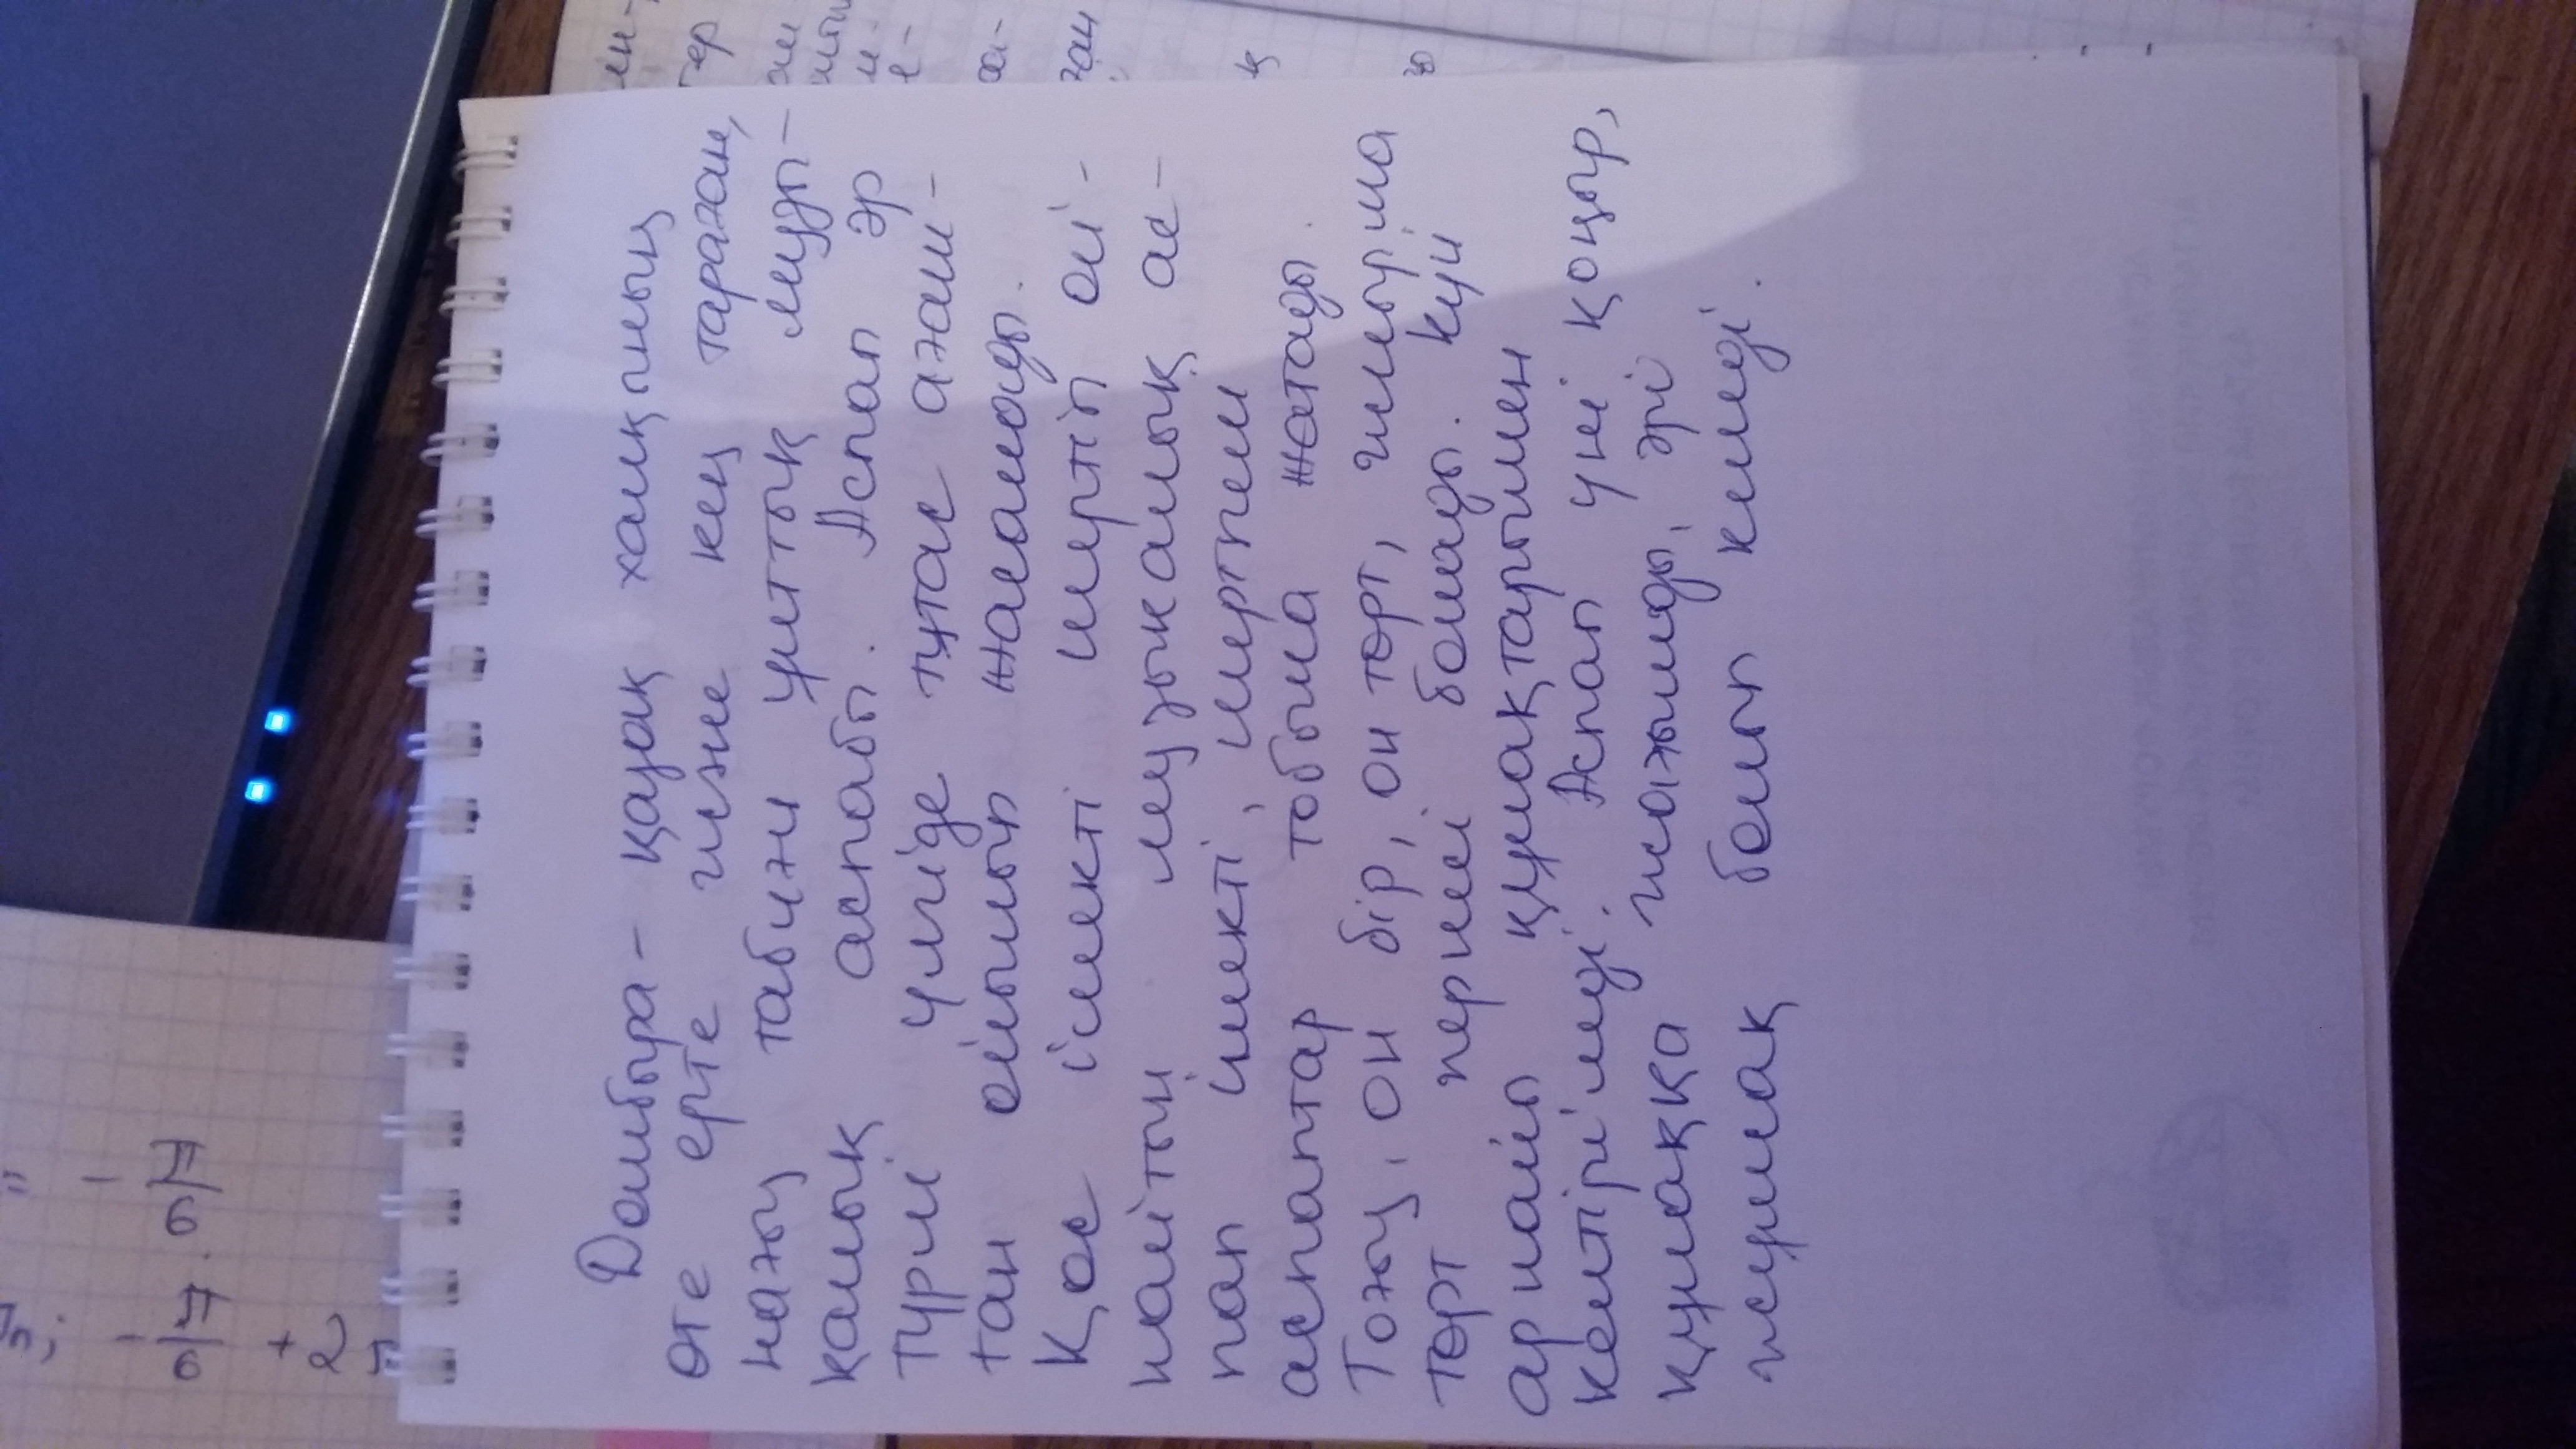 Домбыра- қазақ халқының
өте ерте және кең тараған,
нағыз табиғи ұлттық музы-
калық аспабы. Аспап әр
түрлі үлгіде тұтас ағаш-
тан ойылып жасалады.
Қос ішекті шертіп ой-
найтын музыкалық ас-
пап ішекті, шертпелі
аспаптар тобына жатады.
Тоғыз, он бір, он төрт, жиырма
төрт пернелі болады. Күй
арнайы құлақтарымен
келтіріледі. Аспап үні қоңыр,
құлаққа жағымды, әрі
жұмсақ болып келеді.